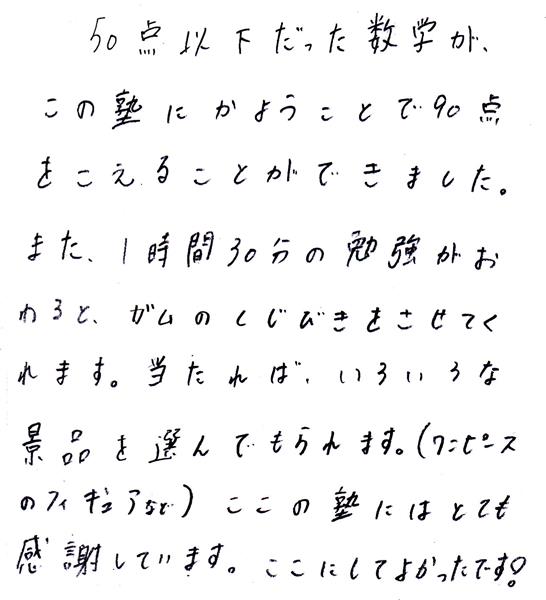 50点以下だった数学が、
この塾にかようことで90点
をこえることができました。
また、1時間30分の勉強がお
わると、ガムのくじびきをさせてく
れます。当たれば、いろいろな
景品を選んでもられます。(ワンピース
のフィギュアなど)ここの塾にはとても
感謝しています。ここにしてよかったです!